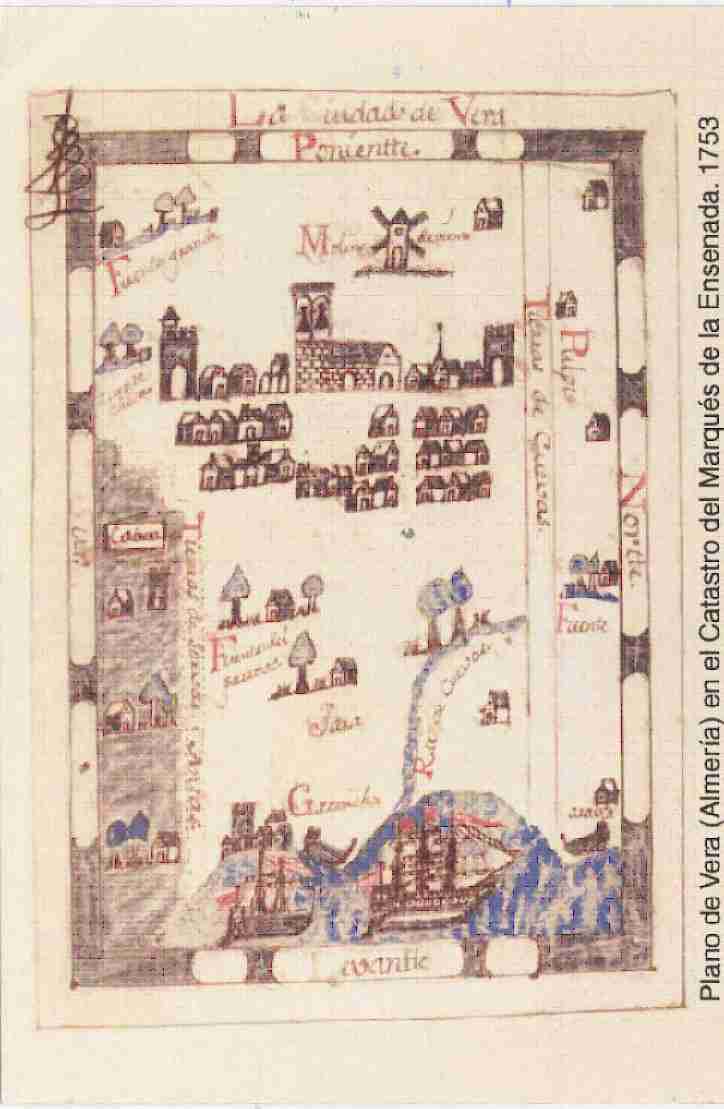 La Ciudad de Vera
Ponientte.
Fuente grande
Molino de viento
Pulpi
Tierras de Cuevas.
Nortte.
Fuente
Fuente del
Para
Rio de Cuevas
Garrucha
Levantte
Plano de Vera (Almería) en el Catastro del Marqués de la Ensenada. 1753